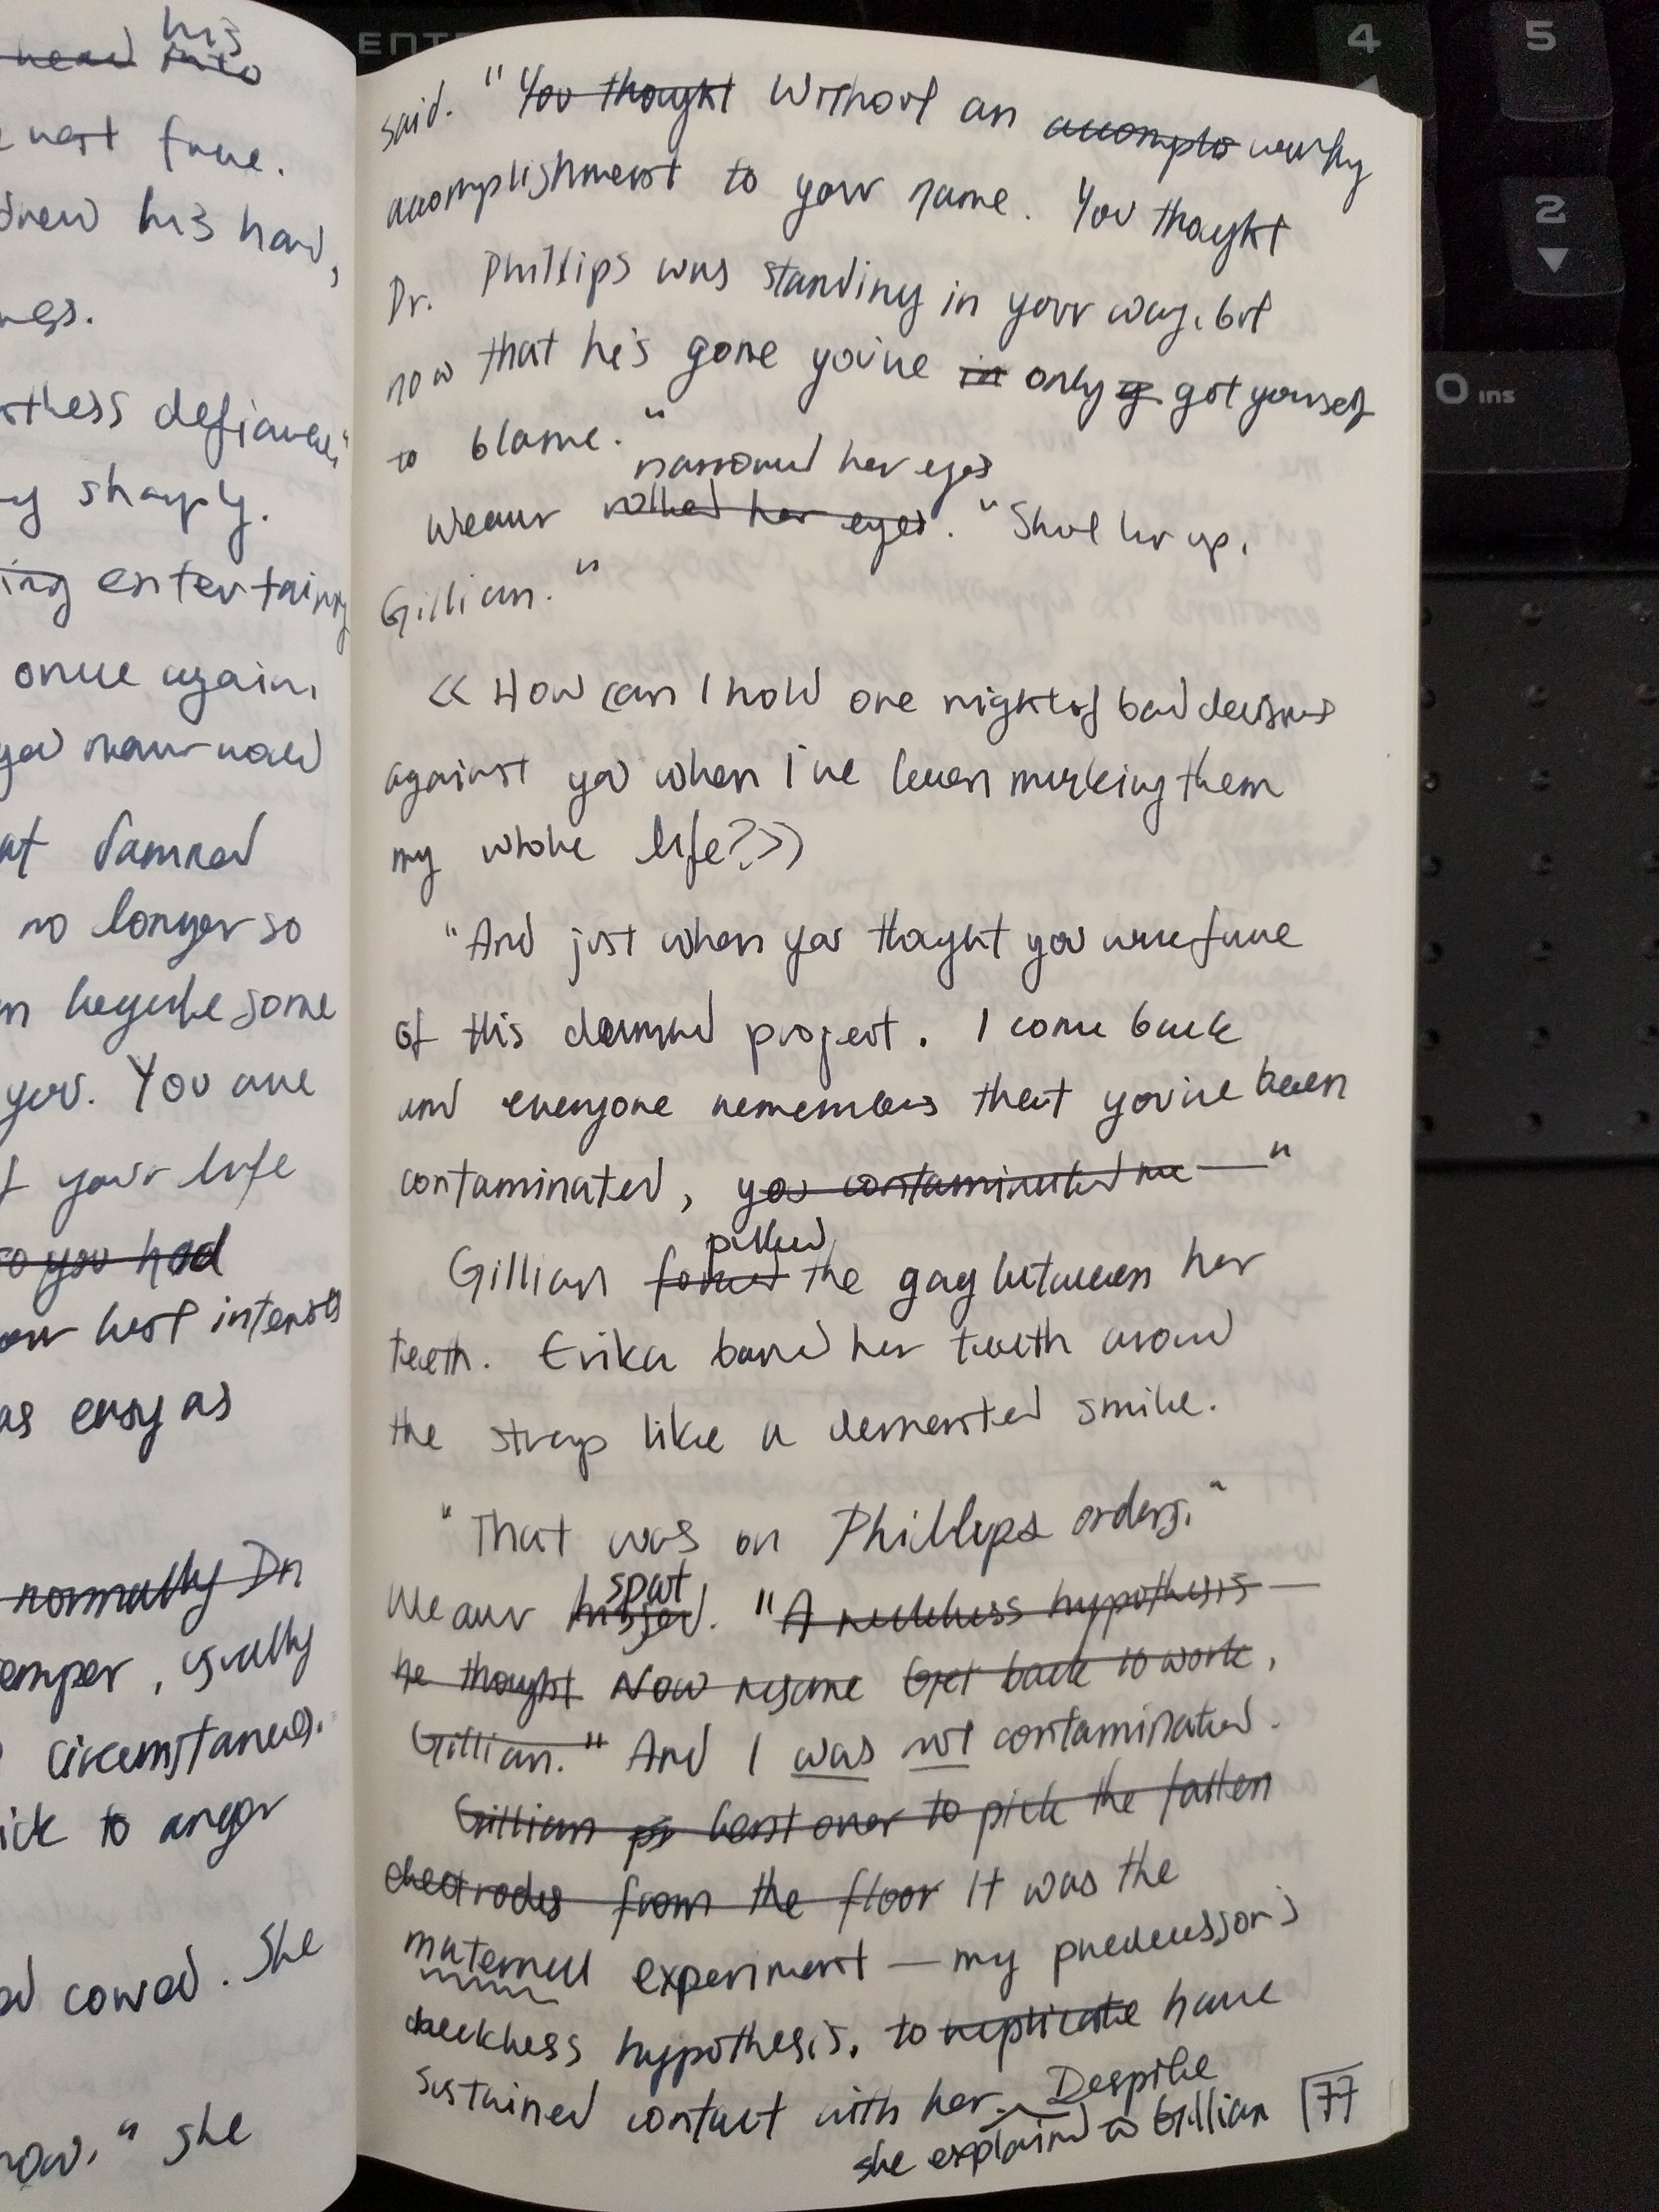 his
head into
next fue.
drew his hand,
defiance,"
sharply.
ing entertaining
once again,
damned
no longer so
some
you. You are
your life
so you had
best interests
as easy as
normally Dr
temper, usually
circumstances.
to anger
cowed. She
now," she
said. "You thought Without an accomplis worthy
accomplishment to your name. You thought
Dr. Phillips was standing in your way, but
now that he's gone you've in only g got yourself
to blame."
narrowed her eyes
Weaver rolled her eyes. "Shut her up,
Gillian."
<< How can I hold one night of bad decisions
against you when I've been making them
my whole life?>>
"And just when you thought you were free
of this damned project. I come back
and everyone remembers that you've been
contaminated, you contaminated me —"
pulled
Gillian forced the gag between her
teeth. Erika bared her teeth around
the strap like a demented smile.
"That was on Phillips orders."
spat
Weaver hissed. "A reckless hypothesis —
he thought Now resume Get back to work,
Gillian." And I was not contaminated.
Gillian bent over to pick the fallen
electrodes from the floor It was the
maternal experiment — my predecessor's
reckless hypothesis, to replicate have
sustained contact with her. Despite
she explained to Gillian
77
ENTER
4
5
2
0 INS